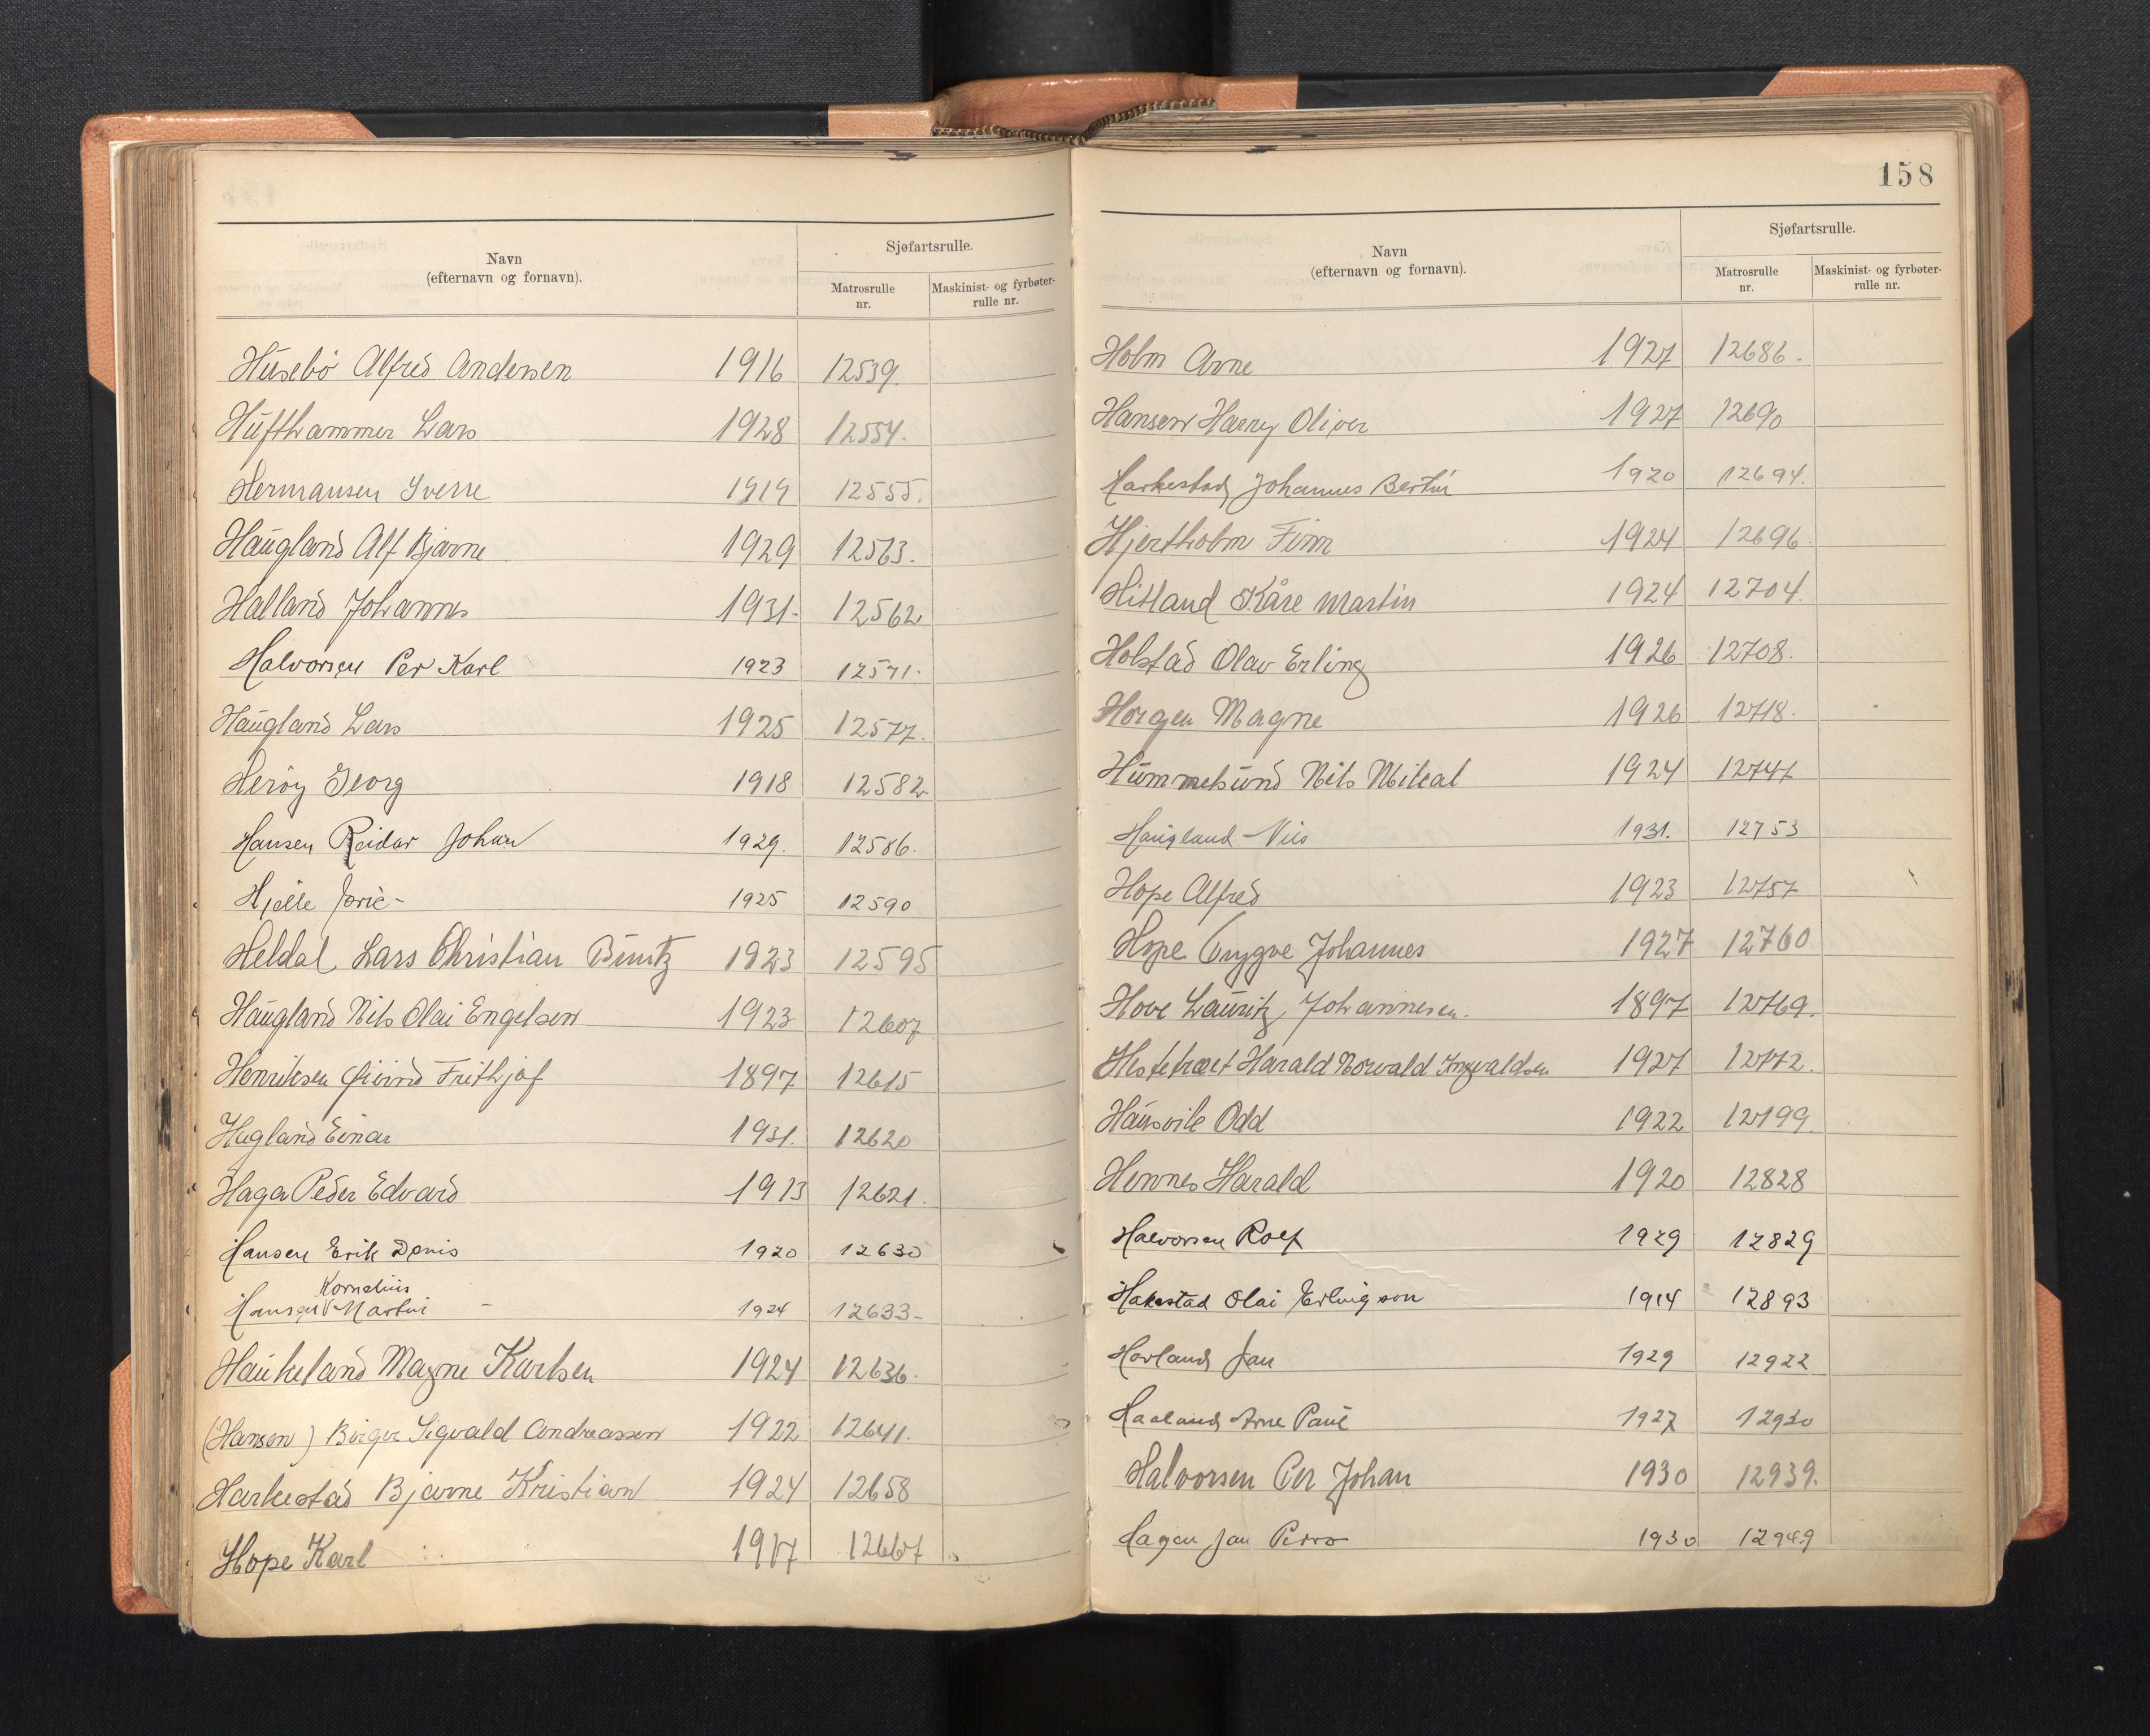 Navn
(efternavn og fornavn).
Sjøfartsrulle.
Matrosrulle
nr.
Maskinist- og fyrbøter-
rulle nr.
Husebø Alfred Andersen 1916 12539.
Hufthammer Lars 1928 12554.
Hermansen Sverre 1919 12555.
Haugland Alf Bjarne 1929 12563.
Halland Johannes 1931- 12562
Halvorsen Per Karl 1923 12571.
Haugland Lars 1925 12577.
Herøy Georg 1918 12582
Hansen Reidar Johan 1929. 12586.
Hjelle 1925 12590
Heldal Lars Christian Buntz 1923 12595
Haugland Nils Olai Engelsen 1923 12607
Henriksen Øivind Frithjof 1897 12615
Hugland Einar 1931. 12620
Haga Peder Edvard 1913 12621.
Hansen Erik Denis 1920 12630
Kornelius
Hansen Martin - 1924 12633-
Haukeland Magne Karlsen 1924 12636.
(Hansen) Birger Sigvald Andreassen 1922 12641.
Harkestad Bjarne Kristian 1924 12658
Hope Karl 12667
158
Navn
(efternavn og fornavn).
Sjøfartsrulle.
Matrosrulle
nr.
Maskinist- og fyrbøter-
rulle nr.
Holm Arne 1927 12686.
Hansen Harry Oliver 1927 12690
Harkestad Johannes Bertin 1920 12694.
Hjertholm Finn 1924 12696.
Hitland Kåre Martin 1924 12704.
Holstad Olav Erling 1926 12708.
Horgen Magne 1926 12718.
Hummelsund Nils Mikal 1924 12747
Haugland Nils 1931. 12753
Hope Alfred 1923 12757
Hope Trygve Johannes 1927 12760
Hove Lauritz Johannesen. 1897 12769.
Hestetræet Harald Norvald Ingvaldsen 1927 12772.
Hausvik Odd 1922 12799.
Hennes Harald 1920 12828
Halvorsen Rolf 1929 12829
Hakestad Olai Erlingson 1914 12893
Hovland Jan 1929 12922
Haaland Arne Paul 1927 12930
Halvorsen Per Johan 1930 12939.
Hagen Jan 1930 12949